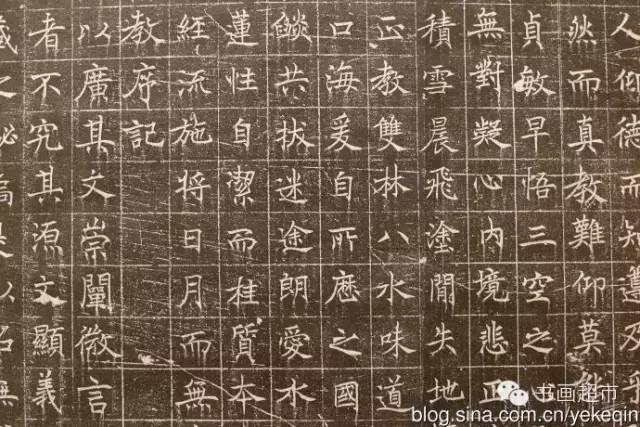 人仰德而知遵及乎
然而真教難仰莫能
貞敏早悟三空之心
無對凝心內境悲正
積雪晨飛塗閒失地
正教雙林八水味道
口海爰自所歷之國
燄共拔迷途朗愛水
蓮性自潔而桂質本
經流施將日月而無
教序記
以廣其文崇闡微言
者不究其源文顯義
之是以名無
书画超市
blog.sina.com.cn/yekeqin